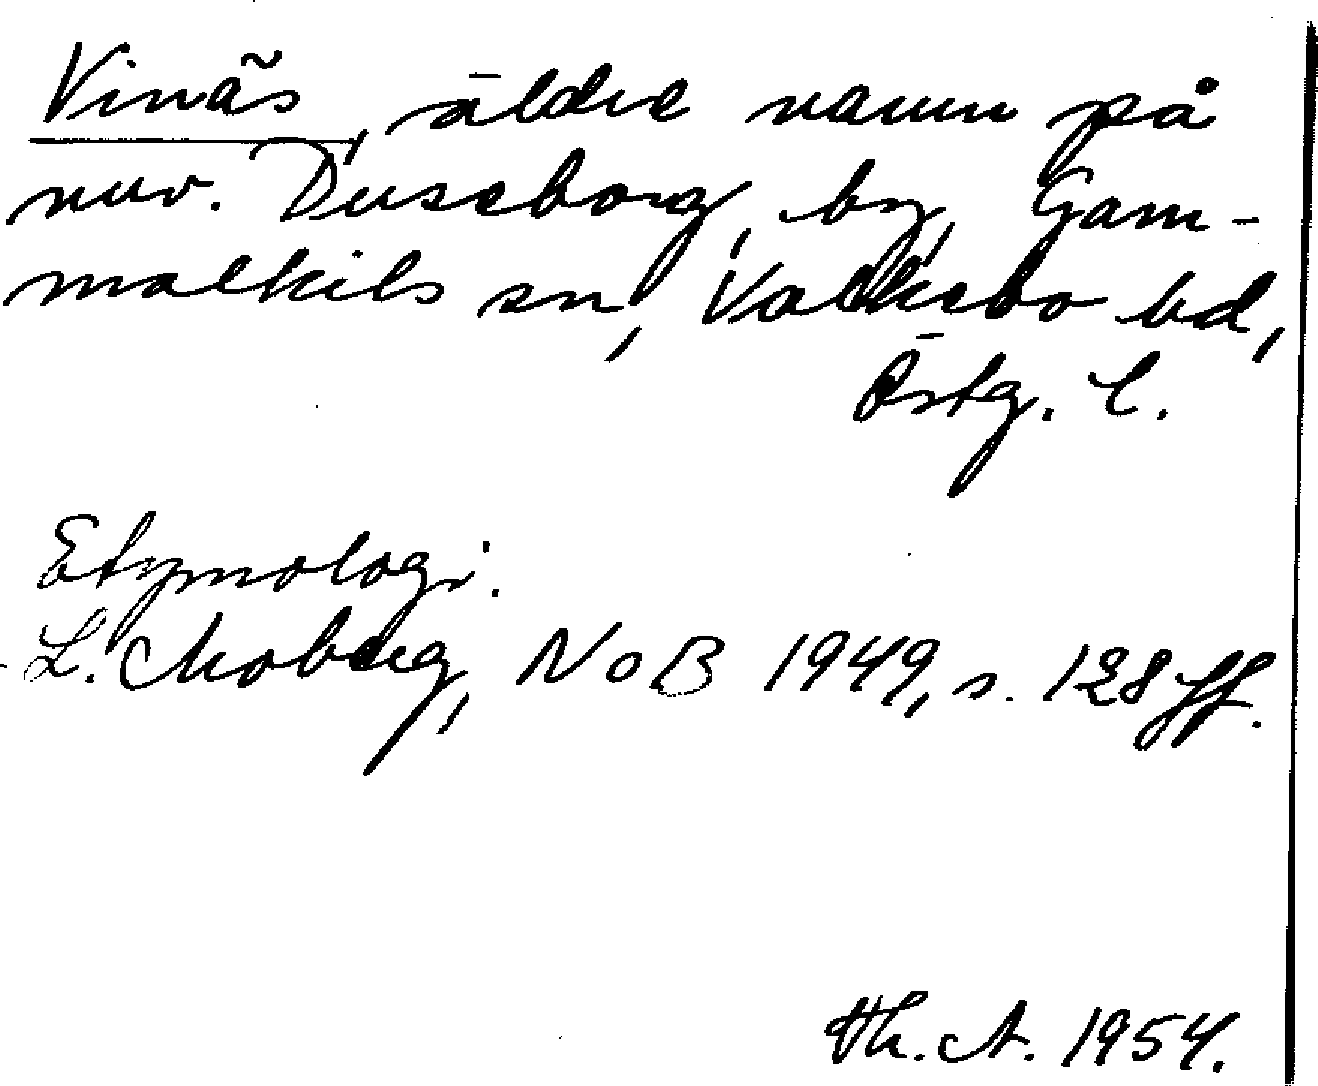 Vinäs, äldre namn på
nuv. Duseborg, by, Gam-
malkils sn, Valkebo hd,
Östg. l.
Etymologi.
L. Moberg, NoB 1949, s. 128 ff.
Th. A. 1954.